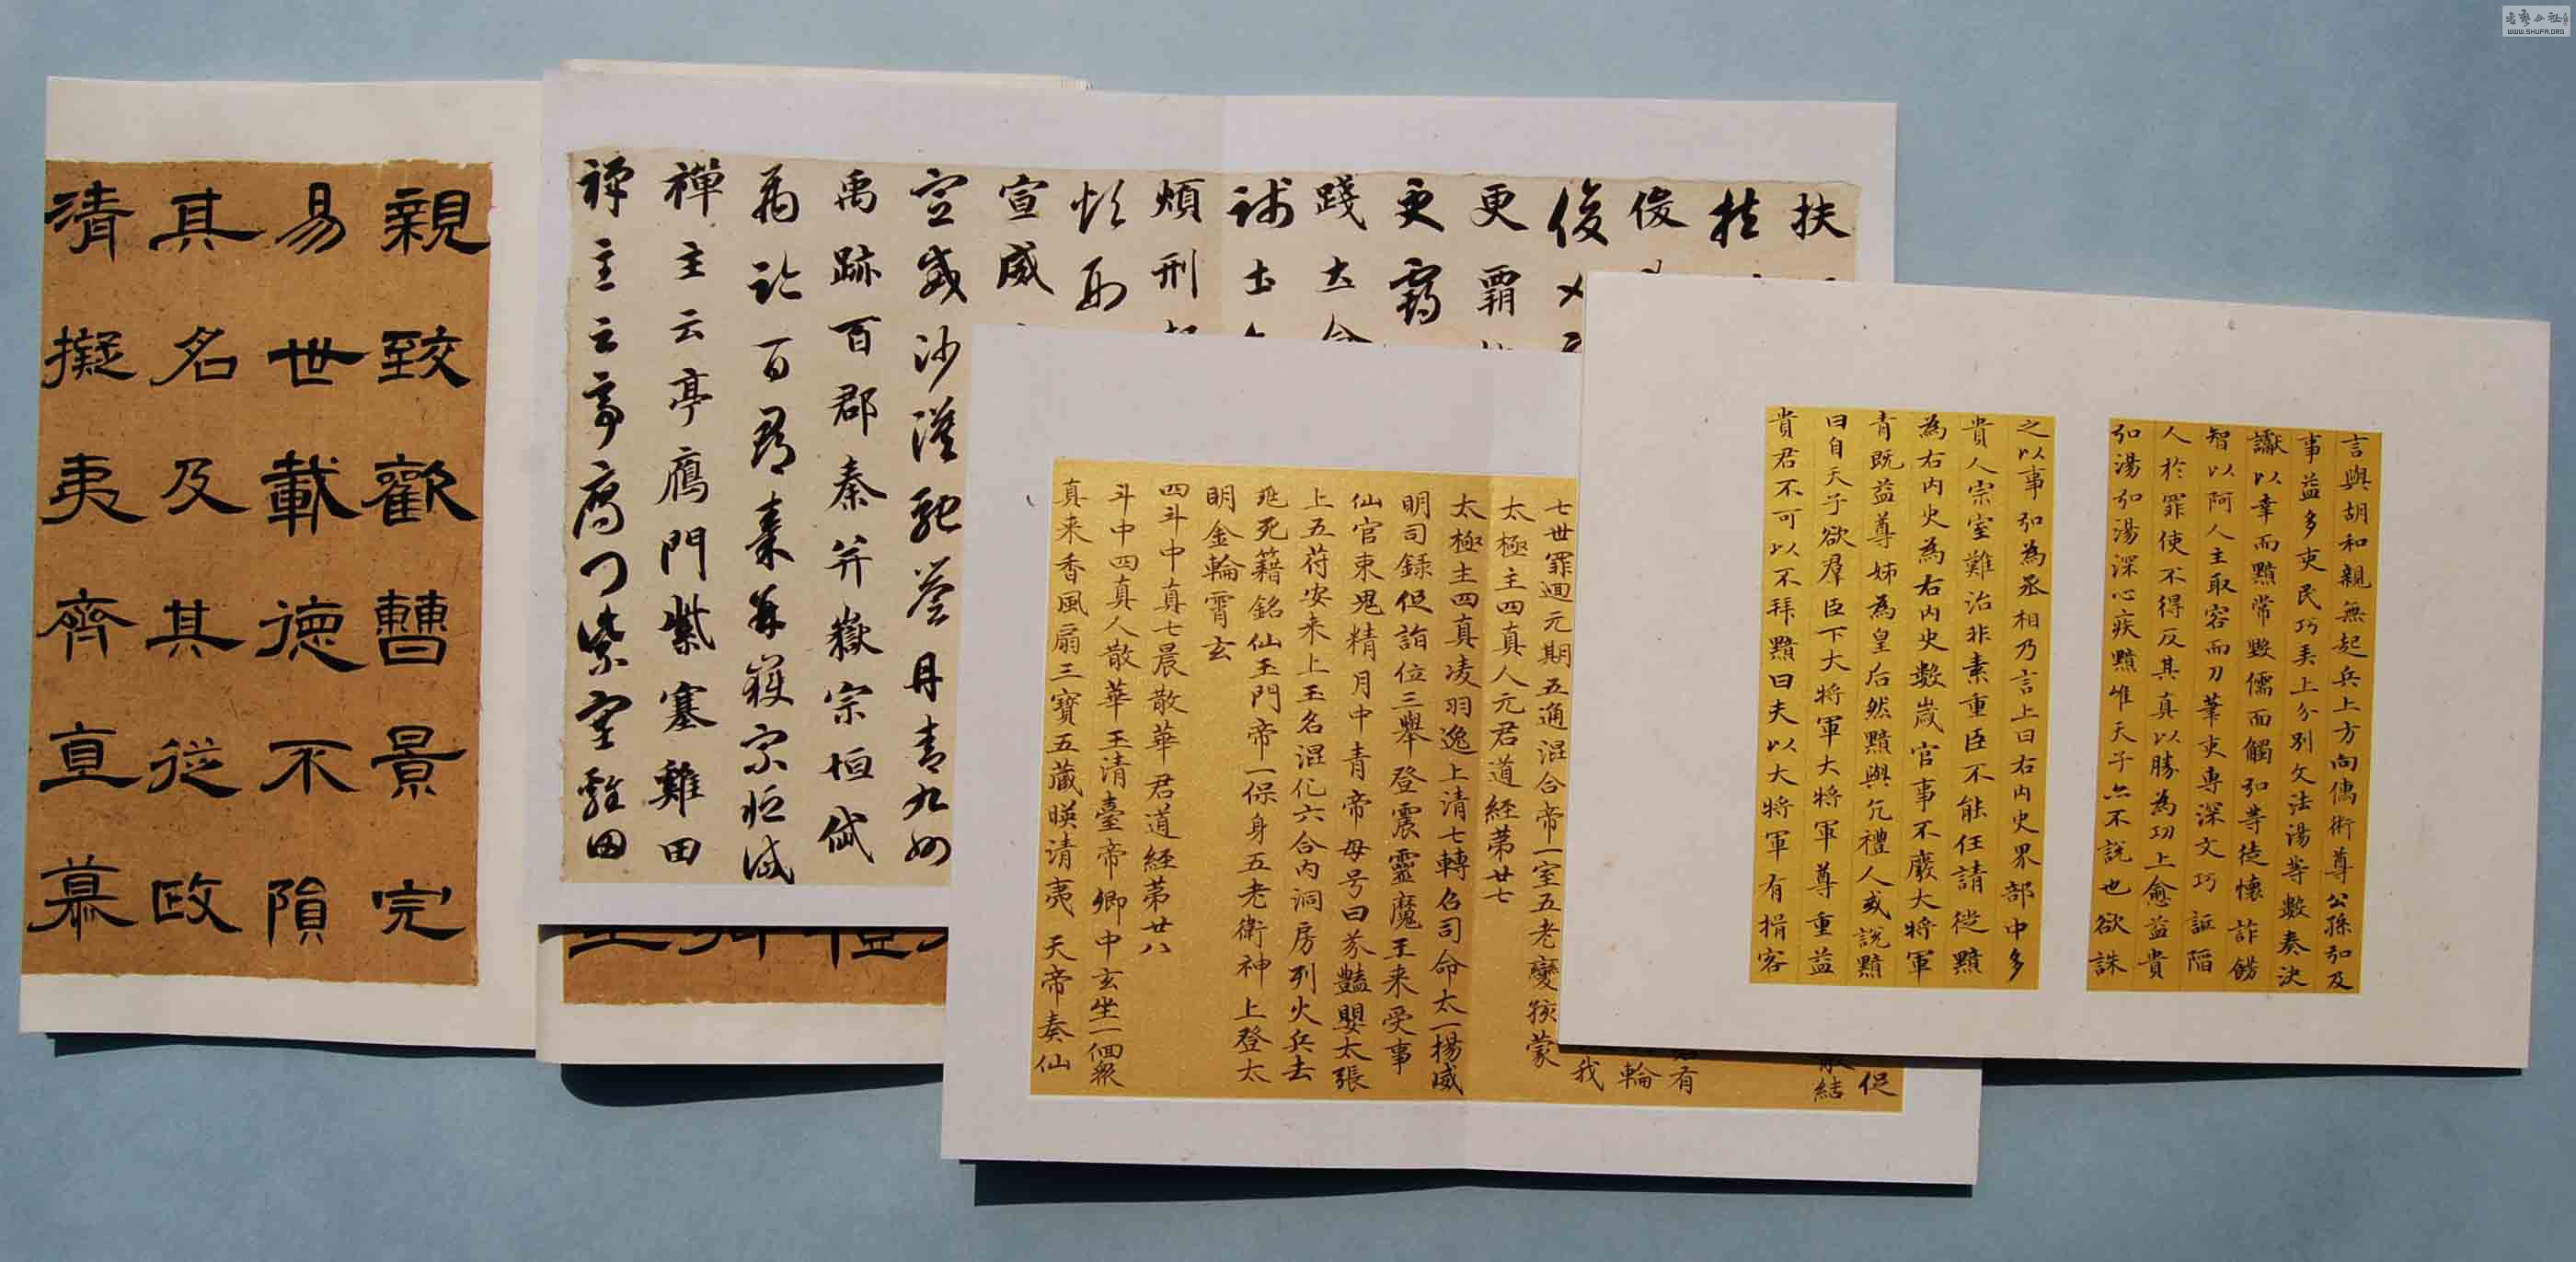 言與胡和親無起兵上方向儒術尊公孫弘及
事益多吏民巧弄上分別文法湯等數奏決
讞以幸而黯常毀儒面觸弘等徒懷詐飾
智以阿人主取容而刀筆吏專深文巧詆陷
人於罪使不得反其真以勝為功上愈益貴
弘湯弘湯深心疾黯唯天子亦不說也欲誅
之以事弘為丞相乃言上曰右内史界部中多
貴人宗室難治非素重臣不能任請徙黯
為右内史為右内史數歲官事不廢大將軍
青既益尊姊為皇后然黯與亢禮人或說黯
曰自天子欲羣臣下大將軍大將軍尊重益
貴君不可以不拜黯曰夫以大將軍有揖客
促
結
有
輪
我
七世罪迴元期五通混合帝一室五老變孩蒙
太極主四真人元君道經第廿七
太極主四真凌羽逸上清七轉召司命太一揚威
明司錄促詣位三舉登震靈魔王来受事
仙官束鬼精月中青帝母号曰芬豔嬰太張
上五苻安来上玉名混化六合内洞房列火兵去
死籍銘仙玉門帝一保身五老衛神上登太
明金輪霄玄
四斗中真七晨散華君道經第廿八
斗中四真人散華玉清臺帝卿中玄坐一個衆
真来香風扇三寶五藏暎清夷天帝奏仙
扶
扶
俊
俊乂
更霸
更霸
踐土會
踐土會
煩刑
煩刑
宣威
宣威沙漠馳譽丹青九州
禹跡百郡秦并嶽宗恒岱
禹跡百郡秦并嶽宗恒岱
禪主云亭鴈門紫塞雞田
禪主云亭鴈門紫塞雞田
親致歡曹景完
易世載德不隕
其名及其從政
清擬夷齊直慕
WWW.SHUFA.ORG